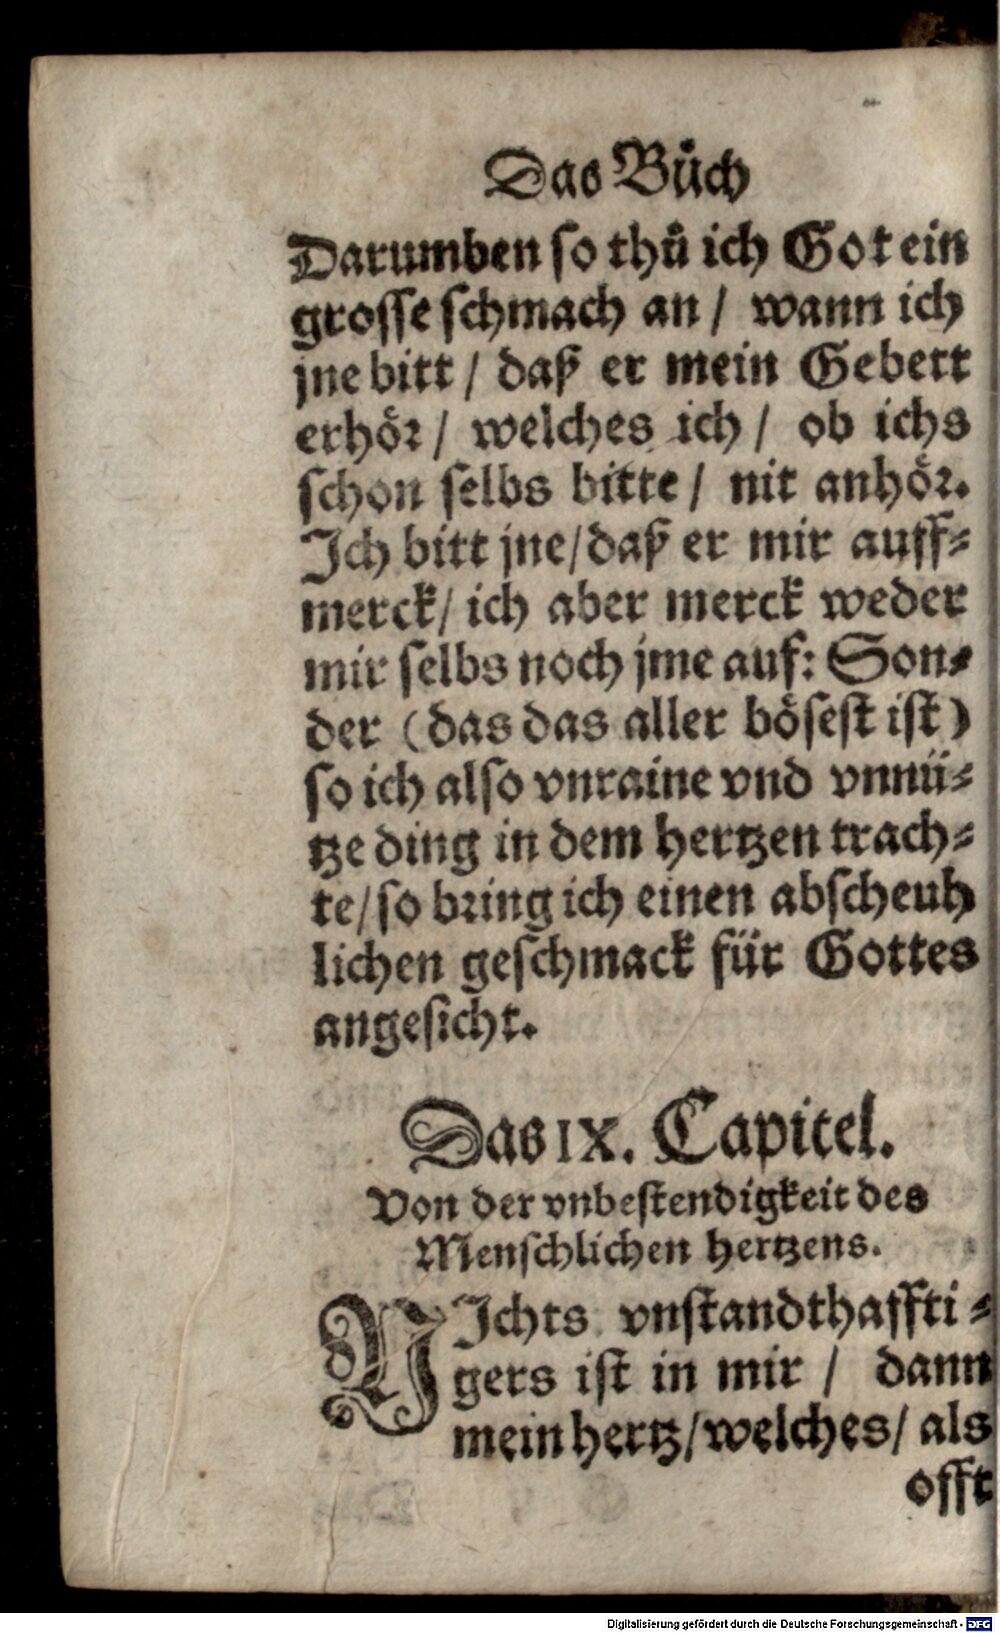 Das Bůch
Darumben so thů ich Got ein
grosse schmach an / wann ich
jne bitt / daß er mein Gebett
erhör / welches ich / ob ichs
schon selbs bitte / nit anhör.
Ich bitt jne / daß er mir auff-
merck / ich aber merck weder
mir selbs noch jme auf: Son-
der (das das aller bösest ist)
so ich also vnraine vnd vnnü-
tze ding in dem hertzen trach-
te / so bring ich einen abscheuh
lichen geschmack für Gottes
angesicht.
Das IX. Capitel.
Von der vnbestendigkeit des
Menschlichen hertzens.
NIchts vnstandthaffti-
gers ist in mir / dann
mein hertz / welches / als
offt
Digitalisierung gefördert durch die Deutsche Forschungsgemeinschaft - DFG